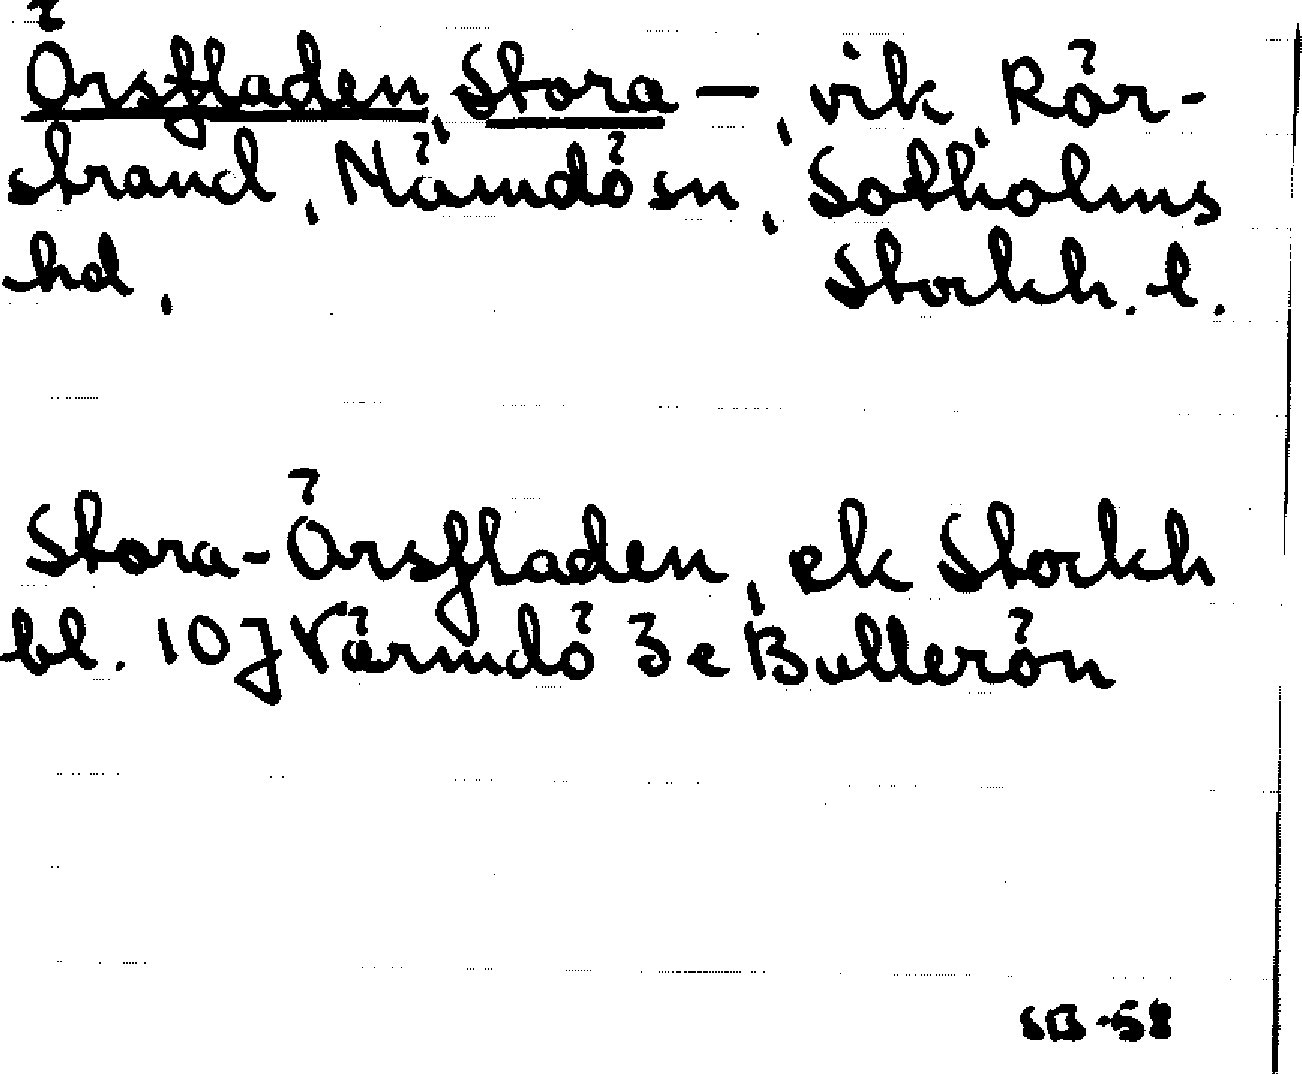 Örsfladen, Stora —, vik, Rör-
strand, Nämdö sn, Sotholms
hd, Stockh. l.
Stora-Örsfladen, ek Stockh
bl. 10J Värmdö 3e Bullerön
SB-58